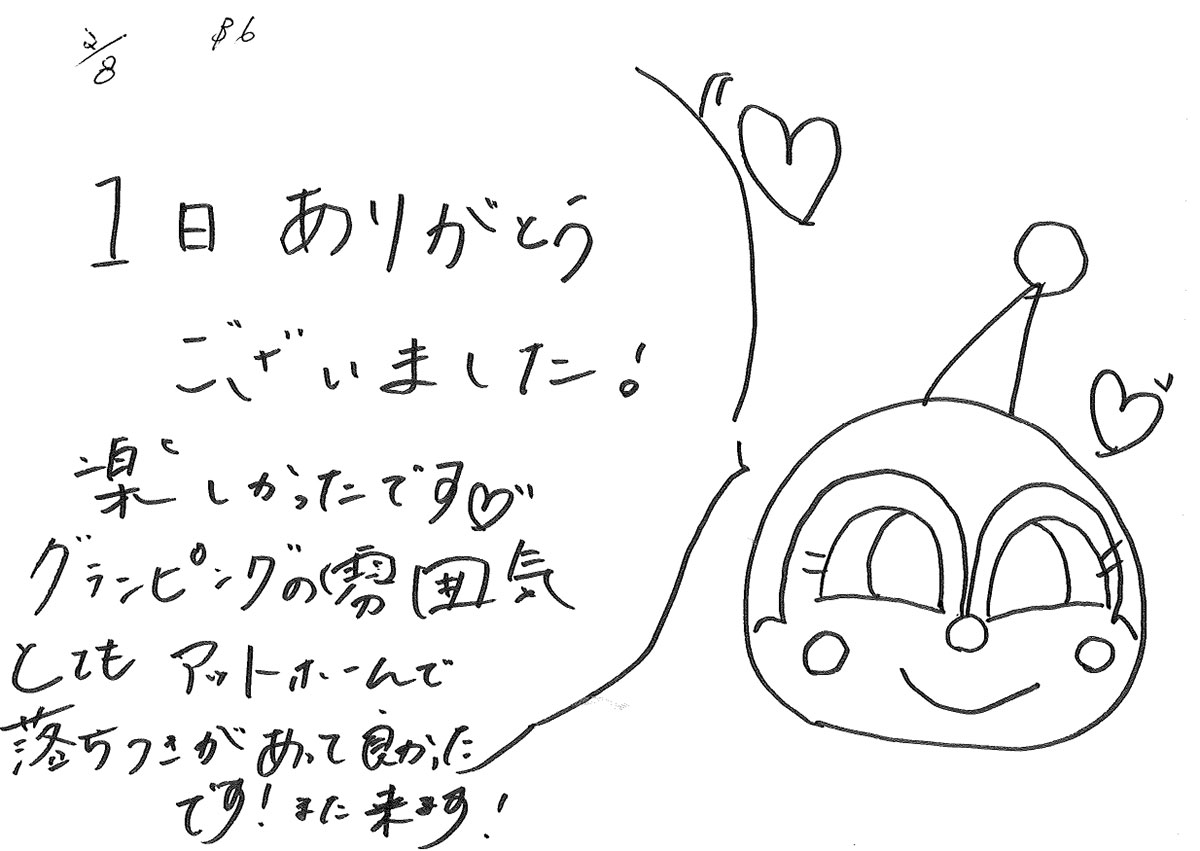 2/8 B6
1日 ありがとう
ございました!
楽しかったです♡
グランピングの雰囲気
とても アットホームで
落ちつきがあって良かった
です!また来ます!